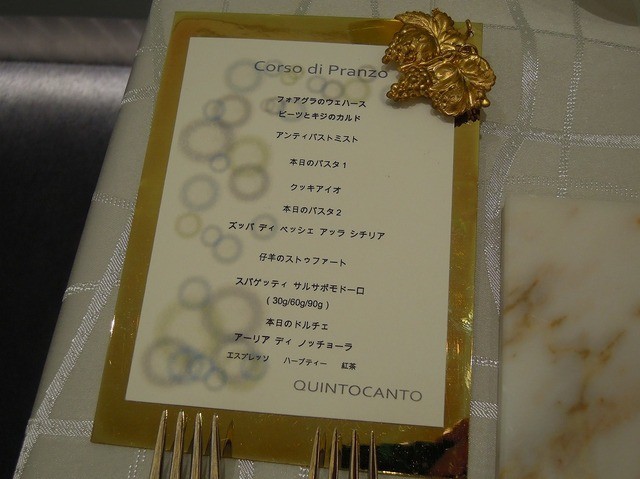 Corso di Pranzo
フォアグラのウェハース
ビーツとキジのカルド
アンティパストミスト
本日のパスタ1
クッキアイオ
本日のパスタ2
ズッパ ディ ペッシェ アッラ シチリア
仔羊のストゥファート
スパゲッティ サルサポモドーロ
( 30g/60g/90g )
本日のドルチェ
アーリア ディ ノッチョーラ
エスプレッソ ハーブティー 紅茶
QUINTOCANTO